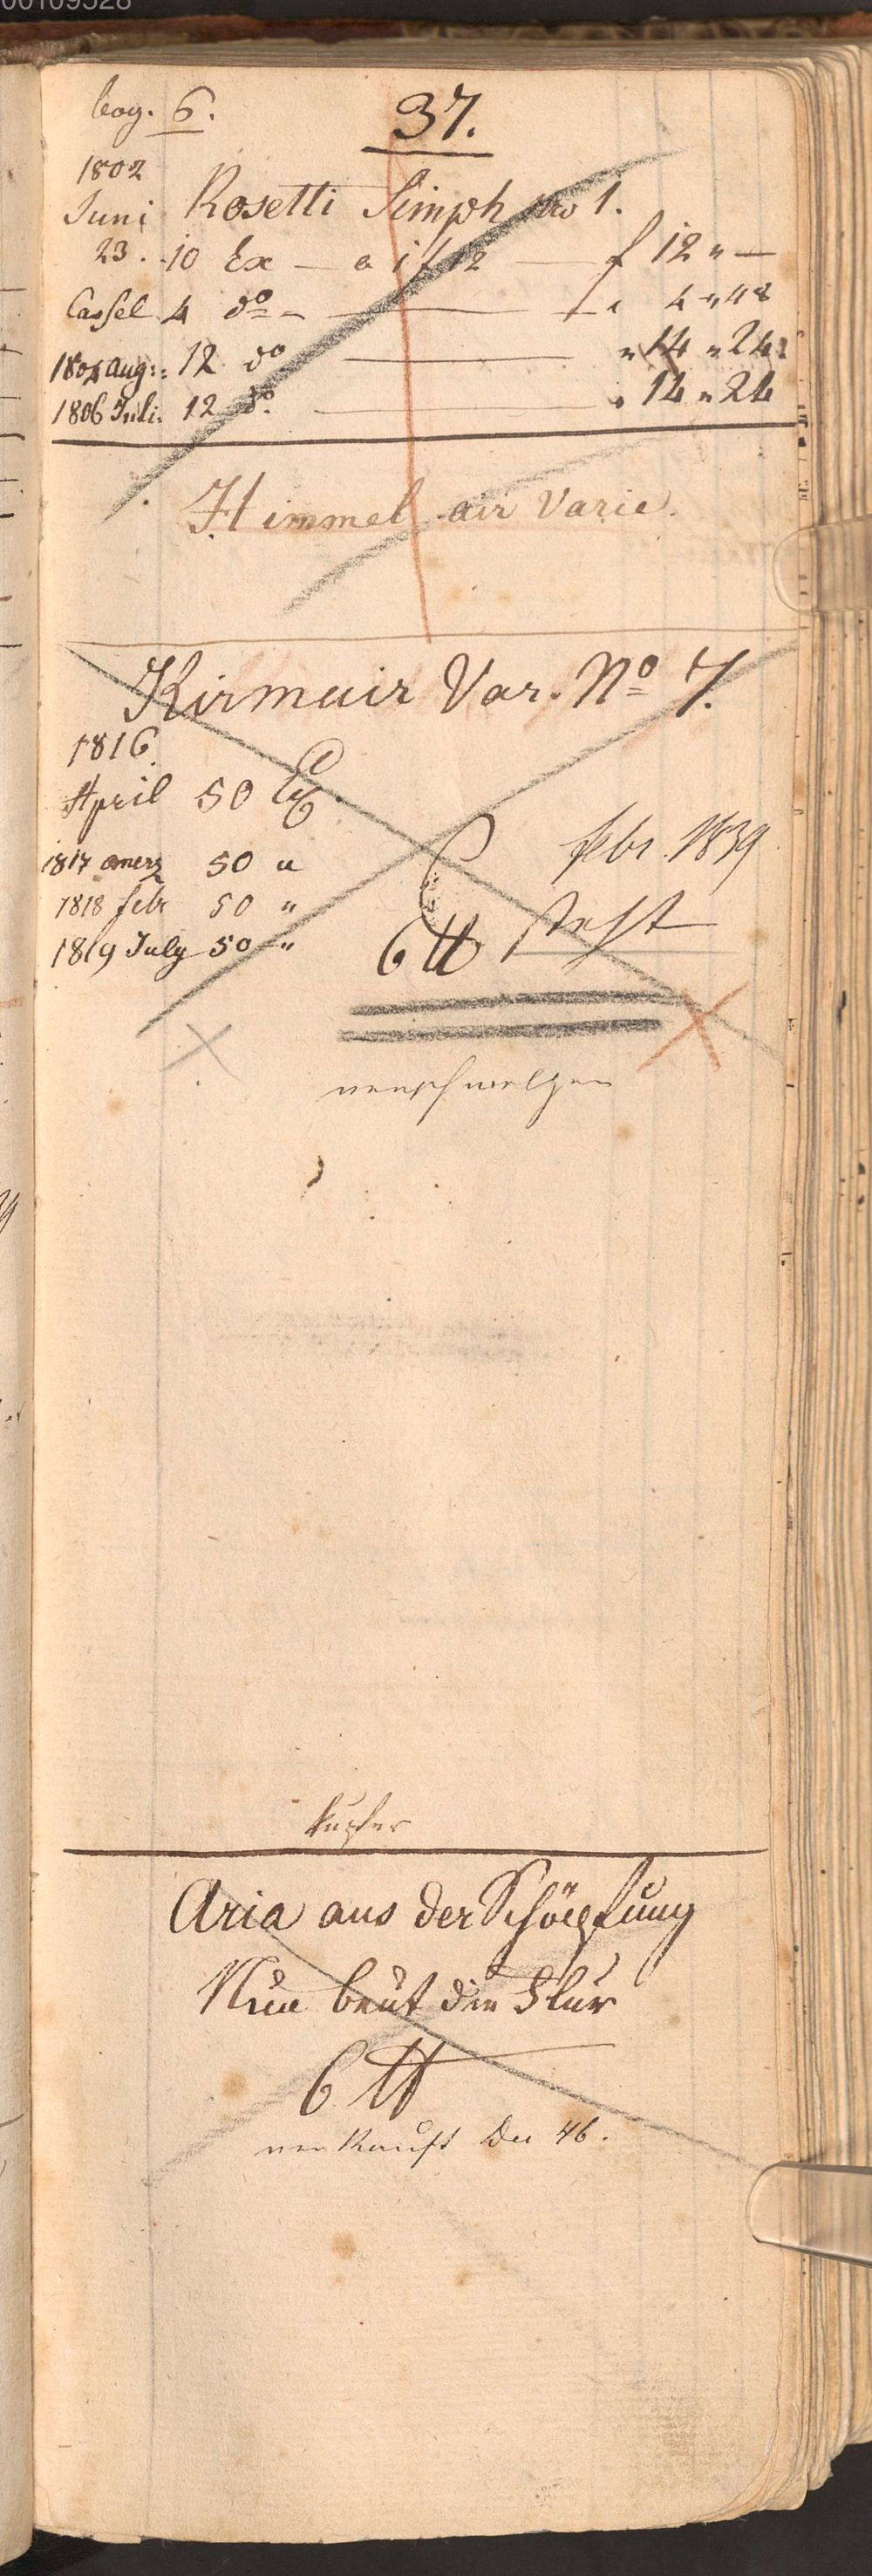 00109528
bog. 6.
37.
1802
Juni Rosetti Simph no 1.
23. 10 Ex — a 1 f 12 — f 12 " —
Cassel 4 do — " 4 " 48
1804 Aug: 12 do — " 14 " 24
1806 Juli. 12 do. — " 14 " 24
Himmel air Varie.
Kirmair Var. No 7.
1816.
April 50 Ex
1817 merz 50 "
febr. 1839
1818 febr 50 "
1819 July 50 "
6 ℔
verschmolzen
Kupfer
Aria aus der Schöpfung
Nun beut die Flur
6 ℔
verkauft Dec 46.